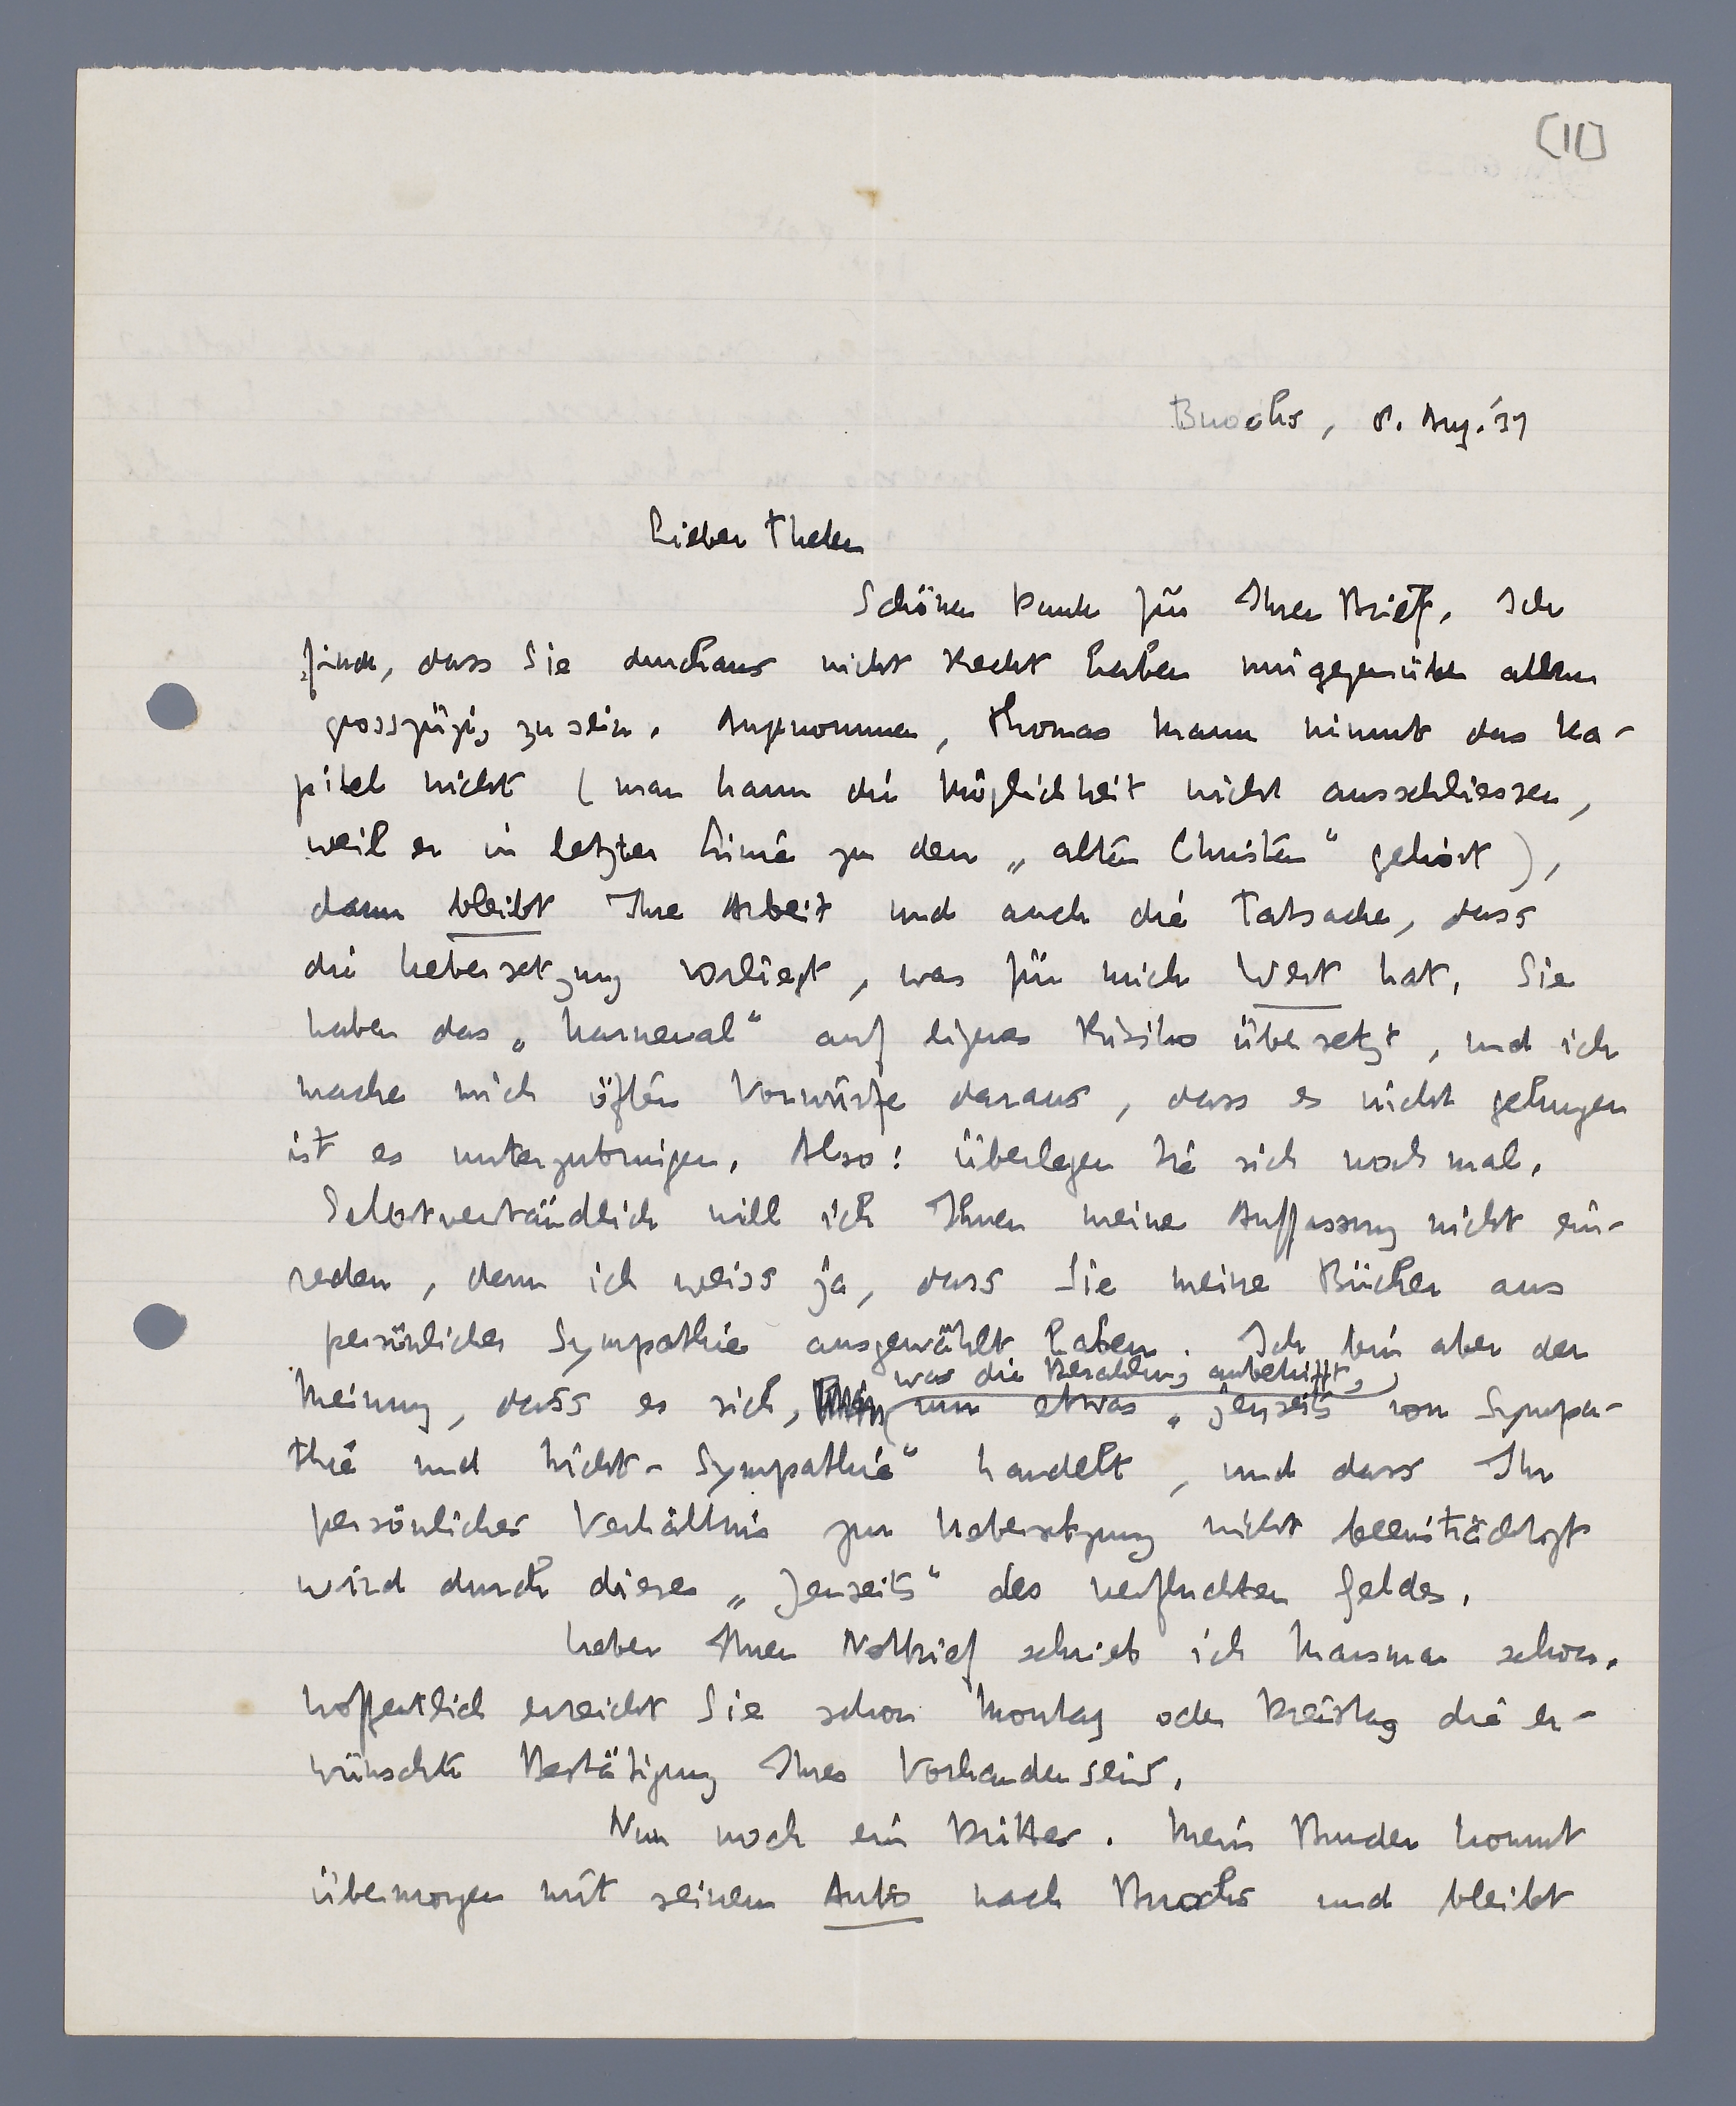 [11]
Buochs, 8. Aug. '37
Lieber Thelen
Schönen Dank für Ihren Brief. Ich
finde, dass Sie durchaus nicht Recht haben mir gegenüber allzu
grosszügig zu sein. Angenommen, Thomas Mann nimmt das Ka-
pitel nicht (man kann die Möglichkeit nicht ausschliessen,
weil er in letzter Linie zu den „alten Christen“ gehört),
dann bleibt Ihre Arbeit und auch die Tatsache, dass
die Uebersetzung vorliegt, was für mich Wert hat. Sie
haben das „Karneval“ auf eigenes Risiko übersetzt, und ich
mache mich öfters Vorwürfe daraus, dass es nicht gelungen
ist es unterzubringen. Also: überlegen Sie sich noch mal.
Selbstverständlich will ich Ihnen meine Auffassung nicht ein-
reden, denn ich weiss ja, dass Sie meine Bücher aus
persönlicher Sympathie ausgewählt haben. Ich bin aber der
was die Bezahlung anbetrifft,
Meinung, dass es sich, um etwas „jenseits von Sympa-
thie und Nicht-Sympathie“ handelt, und dass Ihr
persönliches Verhältnis zur Uebersetzung nicht beeinträchtigt
wird durch dieses „Jenseits“ des verfluchten Geldes.
Ueber Ihren Notbrief schrieb ich Marsman schon.
Hoffentlich erreicht Sie schon Montag oder Dienstag die er-
wünschte Bestätigung Ihres Vorhandenseins.
Nun noch ein Drittes. Mein Bruder kommt
übermorgen mit seinem Auto nach Buochs und bleibt